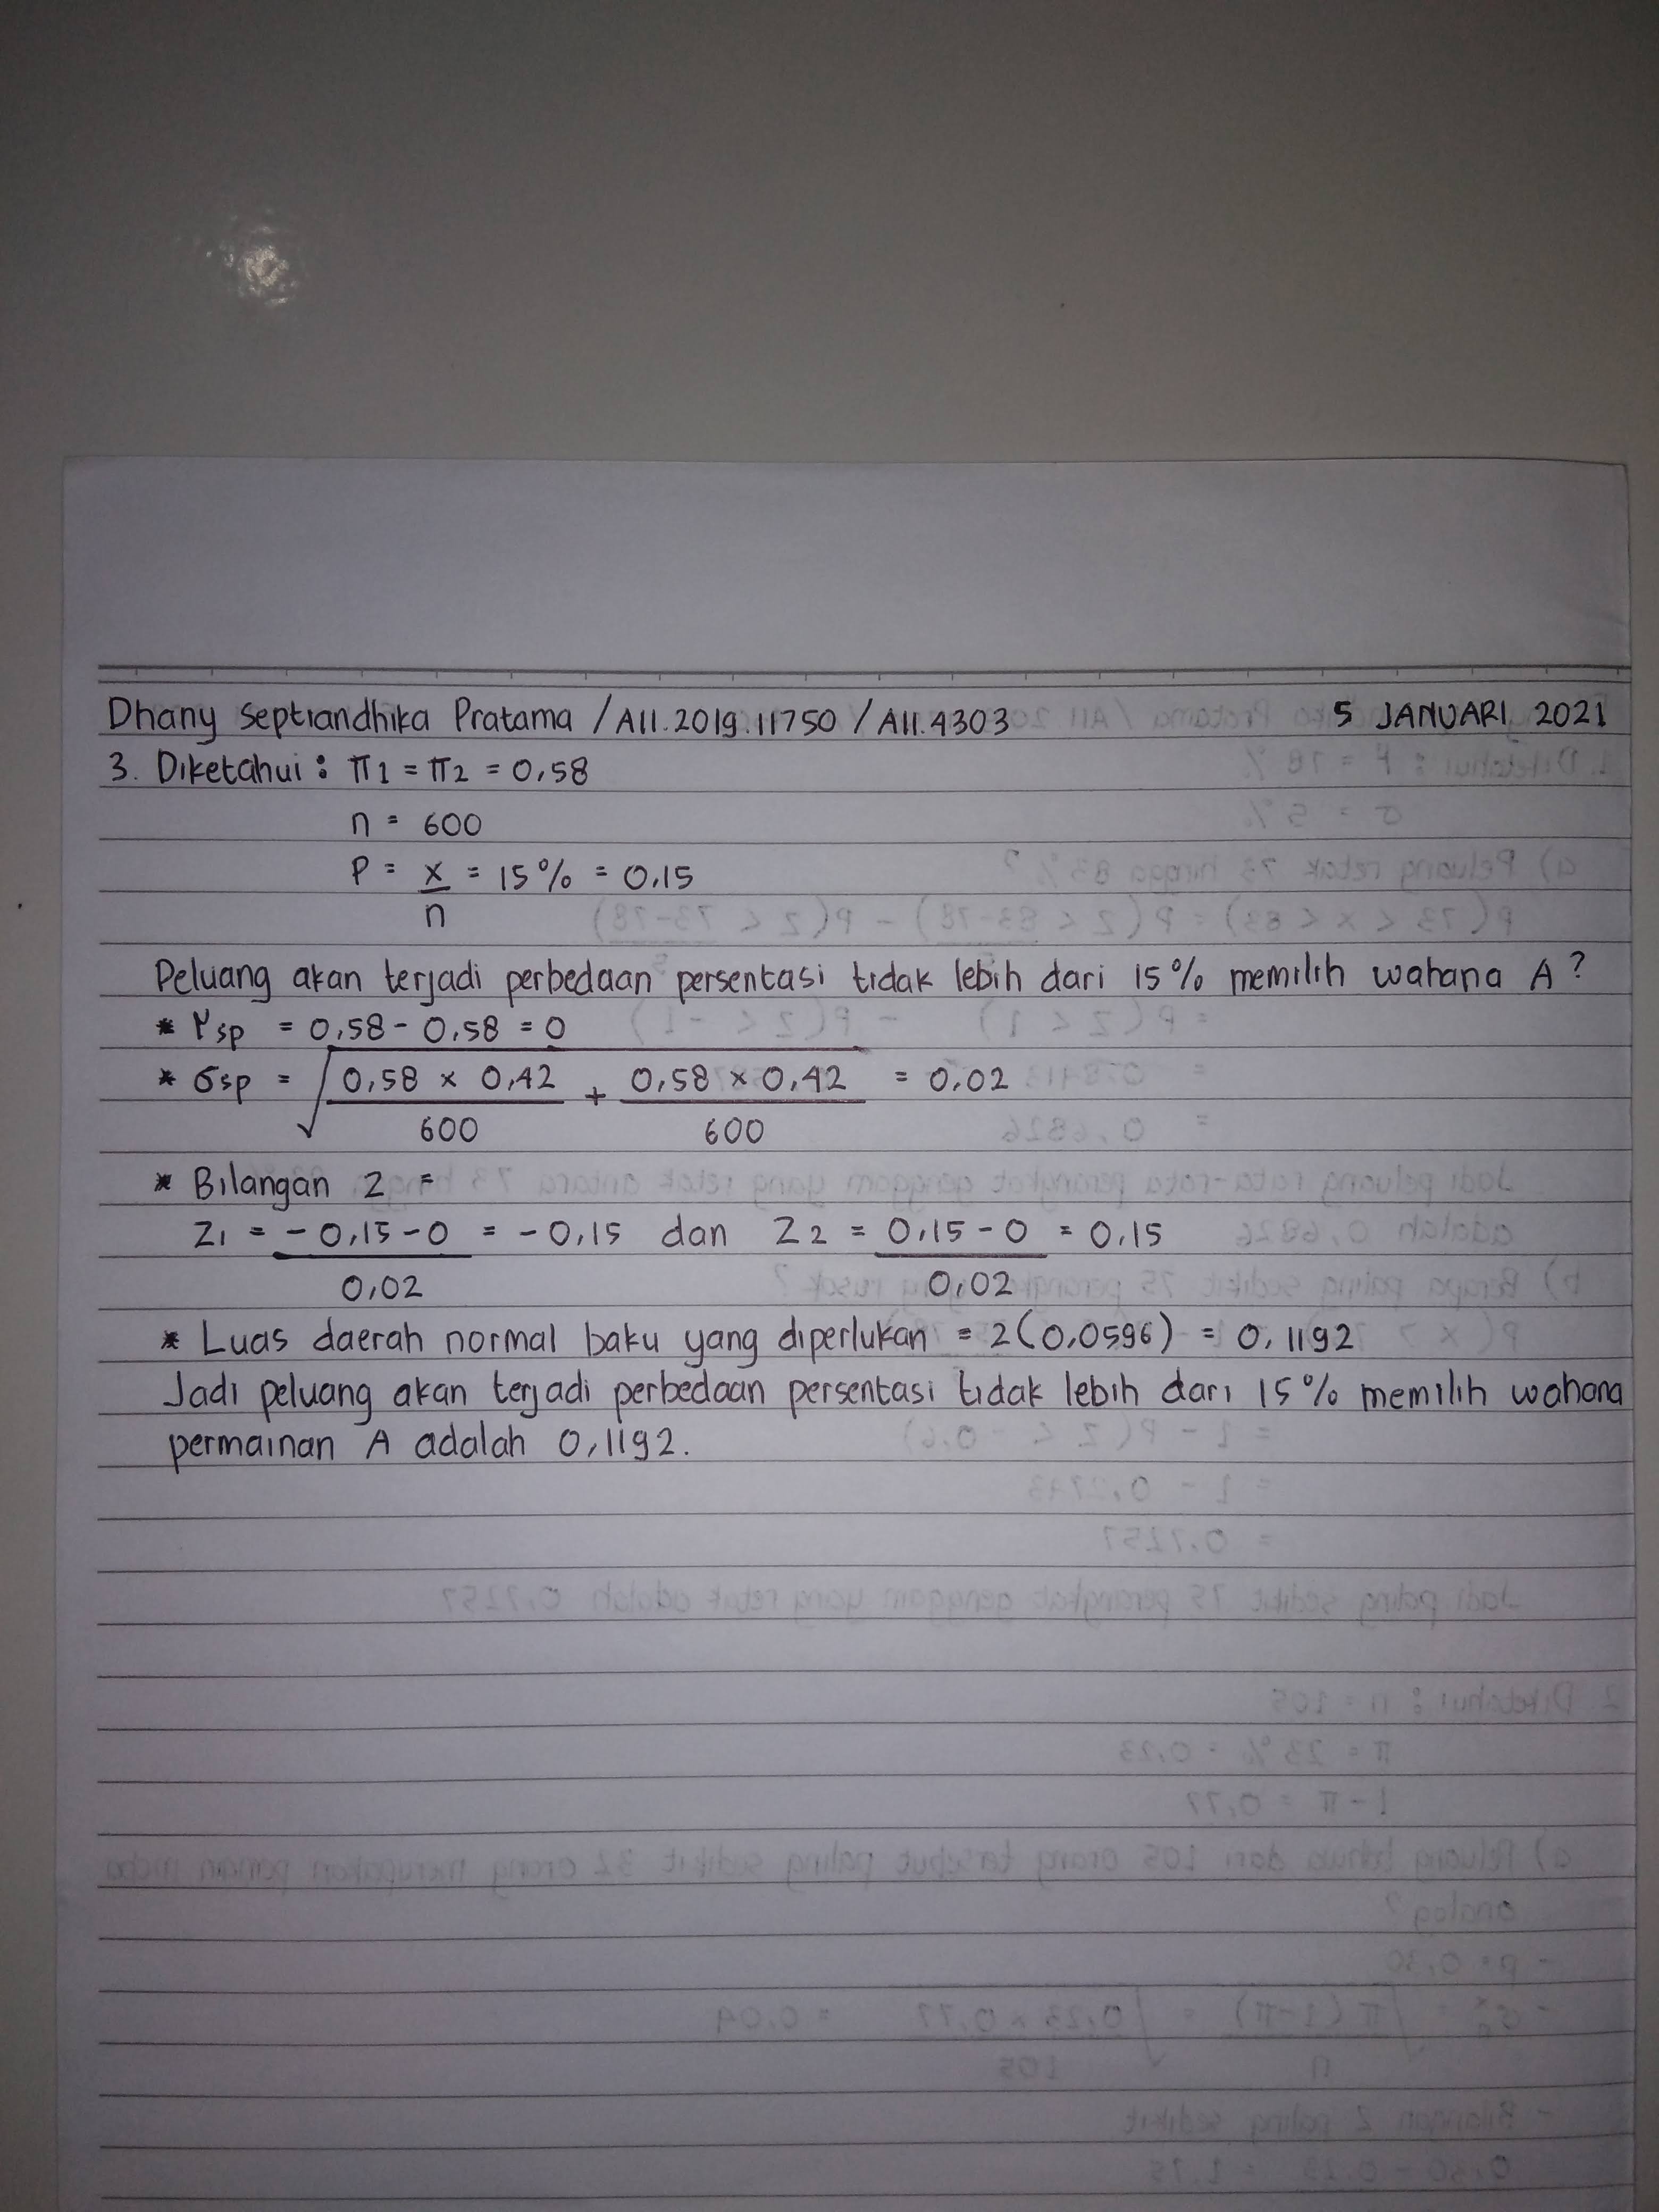 Dhany Septiandhika Pratama / A11.2019.11750 / A11.4303 5 JANUARI 2021
3. Diketahui : π1 = π2 = 0,58
n = 600
P = x/n = 15% = 0,15
Peluang akan terjadi perbedaan persentasi tidak lebih dari 15% memilih wahana A?
* μsp = 0,58 - 0,58 = 0
* σsp = √(0,58 x 0,42 / 600 + 0,58 x 0,42 / 600) = 0,02
* Bilangan Z =
Z1 = -0,15-0 / 0,02 = -0,15 dan Z2 = 0,15-0 / 0,02 = 0,15
* Luas daerah normal baku yang diperlukan = 2(0,0596) = 0,1192
Jadi peluang akan terjadi perbedaan persentasi tidak lebih dari 15% memilih wahana
permainan A adalah 0,1192.